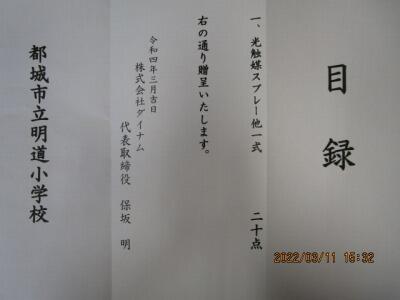 目録
一、光触媒スプレー他一式　二十点
右の通り贈呈いたします。
令和四年三月吉日
株式会社ダイナム
代表取締役　保坂　明
都城市立明道小学校
2022/03/11 15:32